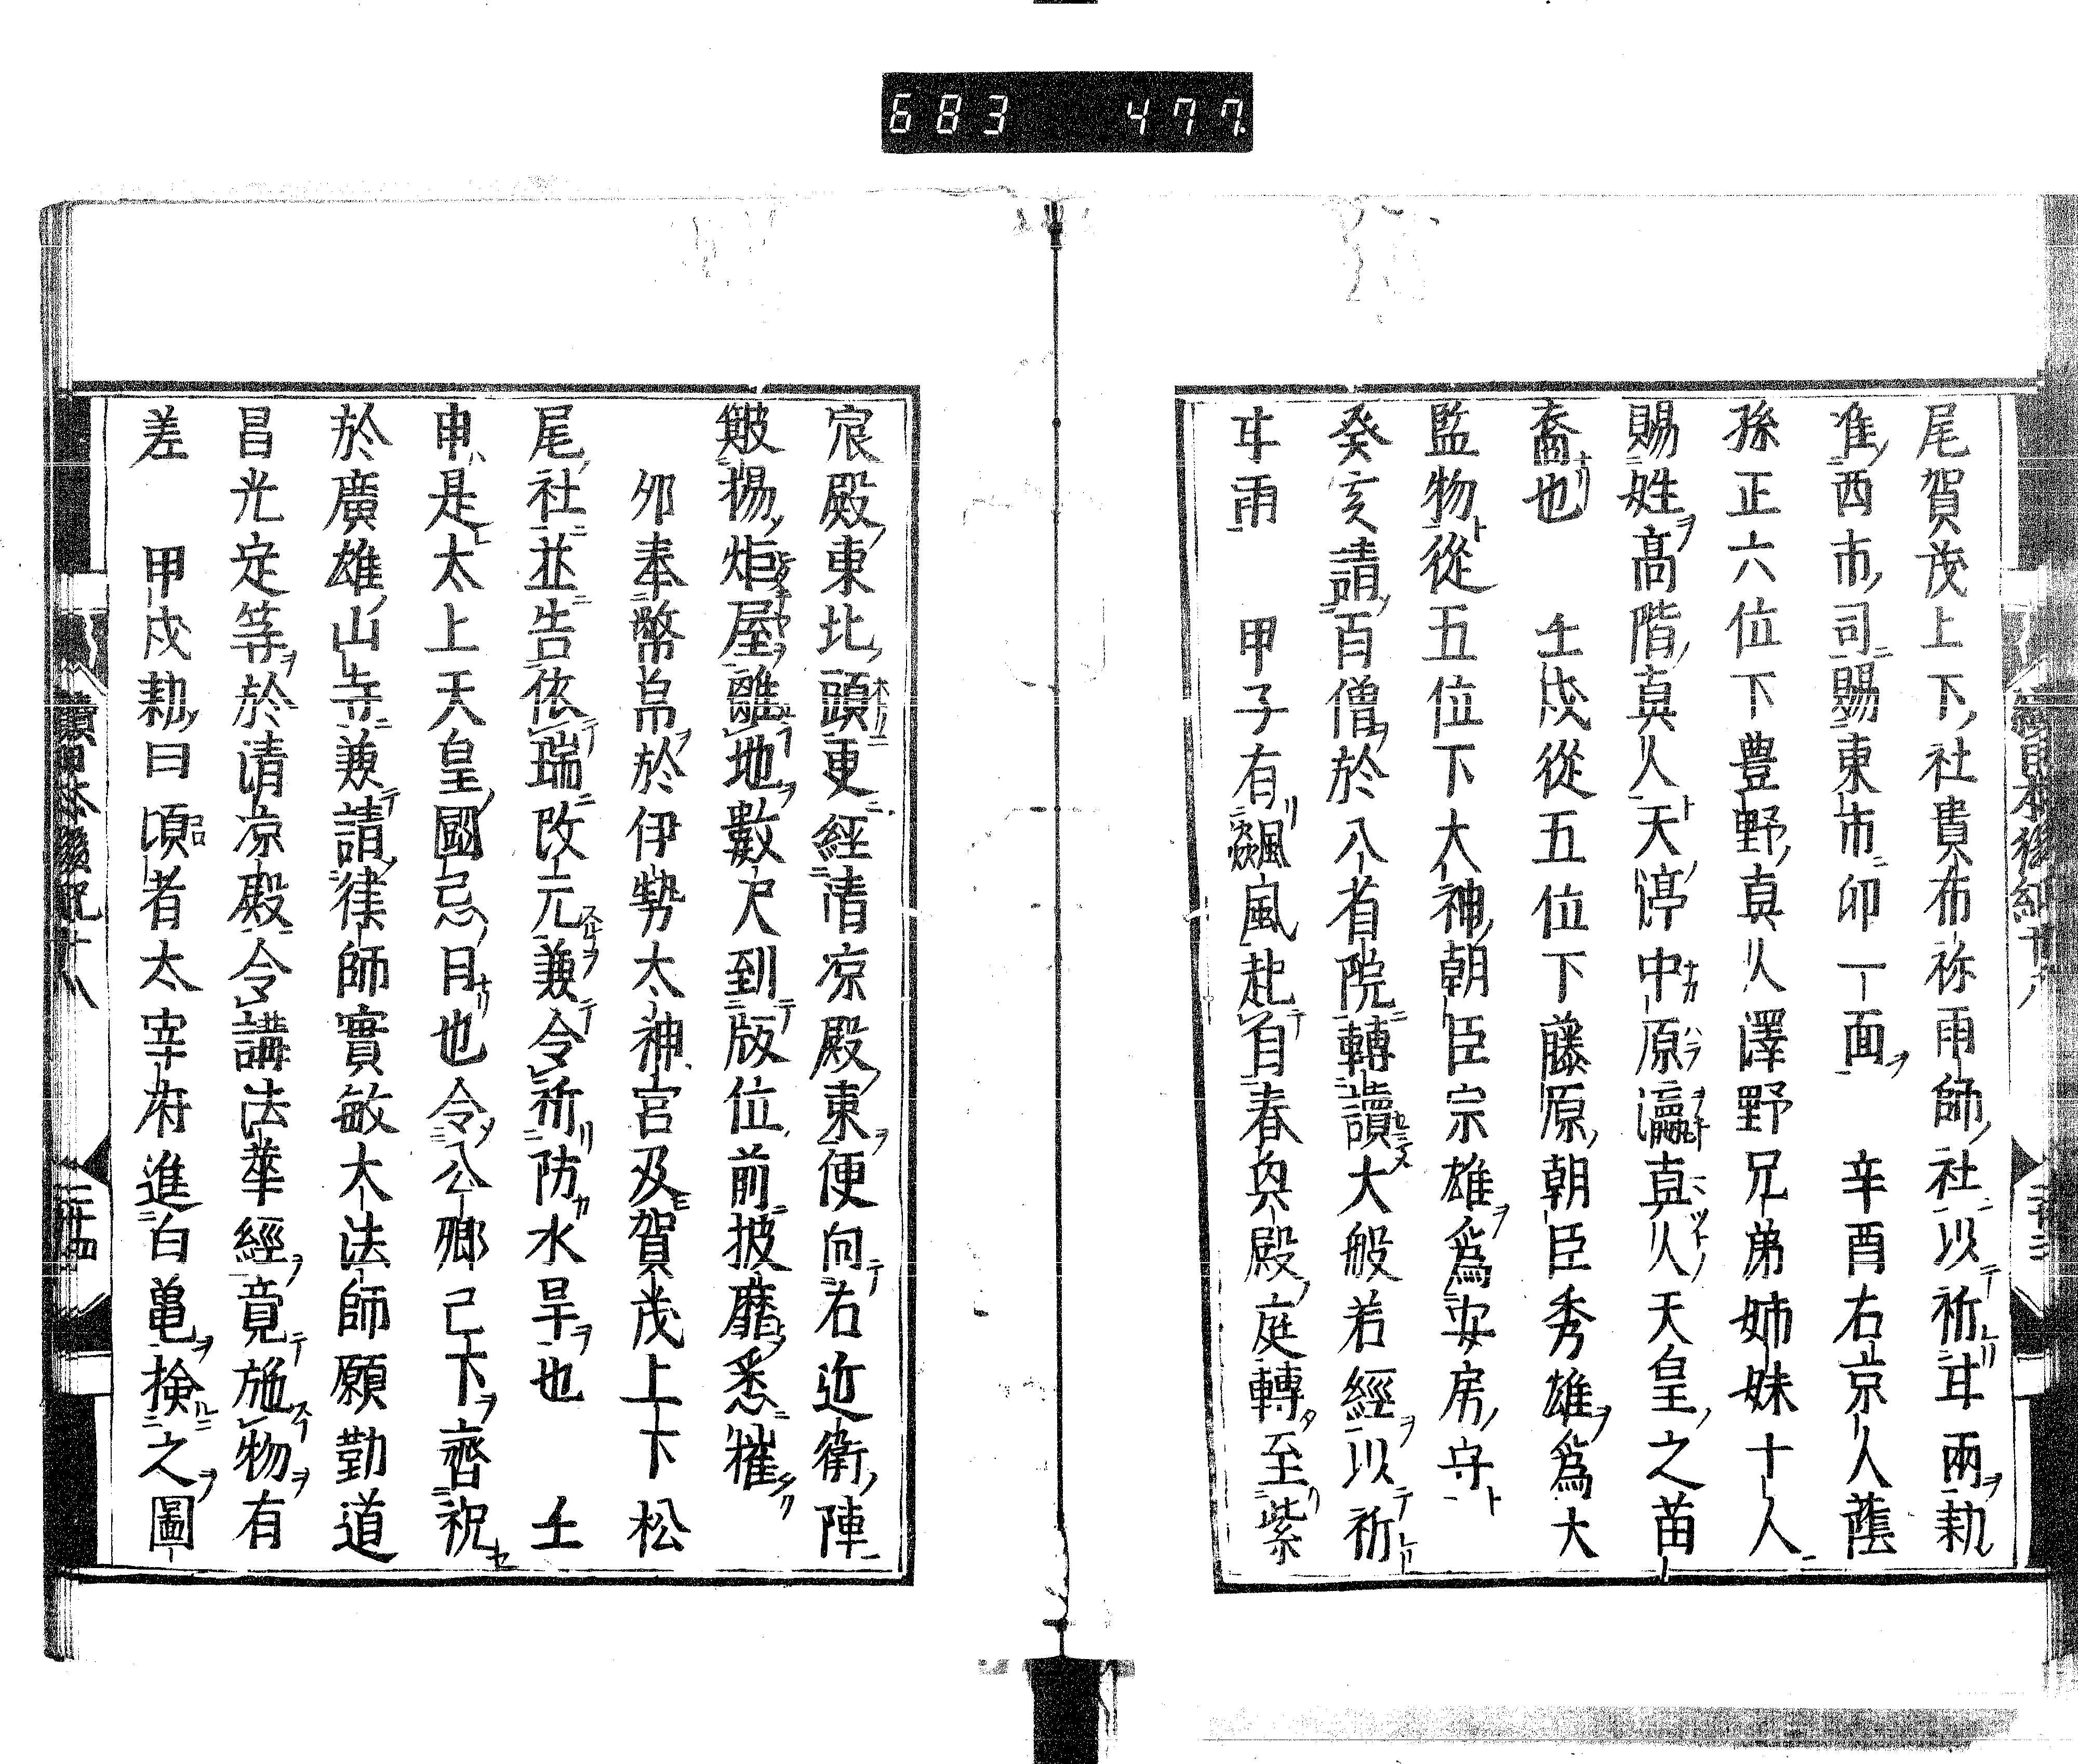 683 477
尾賀茂上下社貴布祢雨師社以祈甘雨勅
准西市司賜東市卯一面 辛酉右京人蔭
孫正六位下豊野真人澤野兄弟姉妹十人
賜姓髙階真人天渟中原瀛真人天皇之苗
裔也 壬戌從五位下藤原朝臣秀雄爲大
監物從五位下大神朝臣宗雄爲安房守
癸亥請百僧於八省院轉讀大般若經以祈
甘雨 甲子有飈風起自春興殿庭轉至紫
宸殿東北頭更經清凉殿東便向右近衛陣
簸揚炬屋離地數尺到版位前披靡悉摧
夘奉幣帛於伊勢太神宮及賀茂上下松
尾社並告依瑞改元兼令祈防水旱也 壬
申是太上天皇國忌月也令公卿已下齋祝
於廣雄山寺兼請律師實敏大法師願勤道
昌光定等於清凉殿令講法華經竟施物有
差 甲戌勅曰頃者太宰府進白亀検之圖
續日本後紀十八
三十四